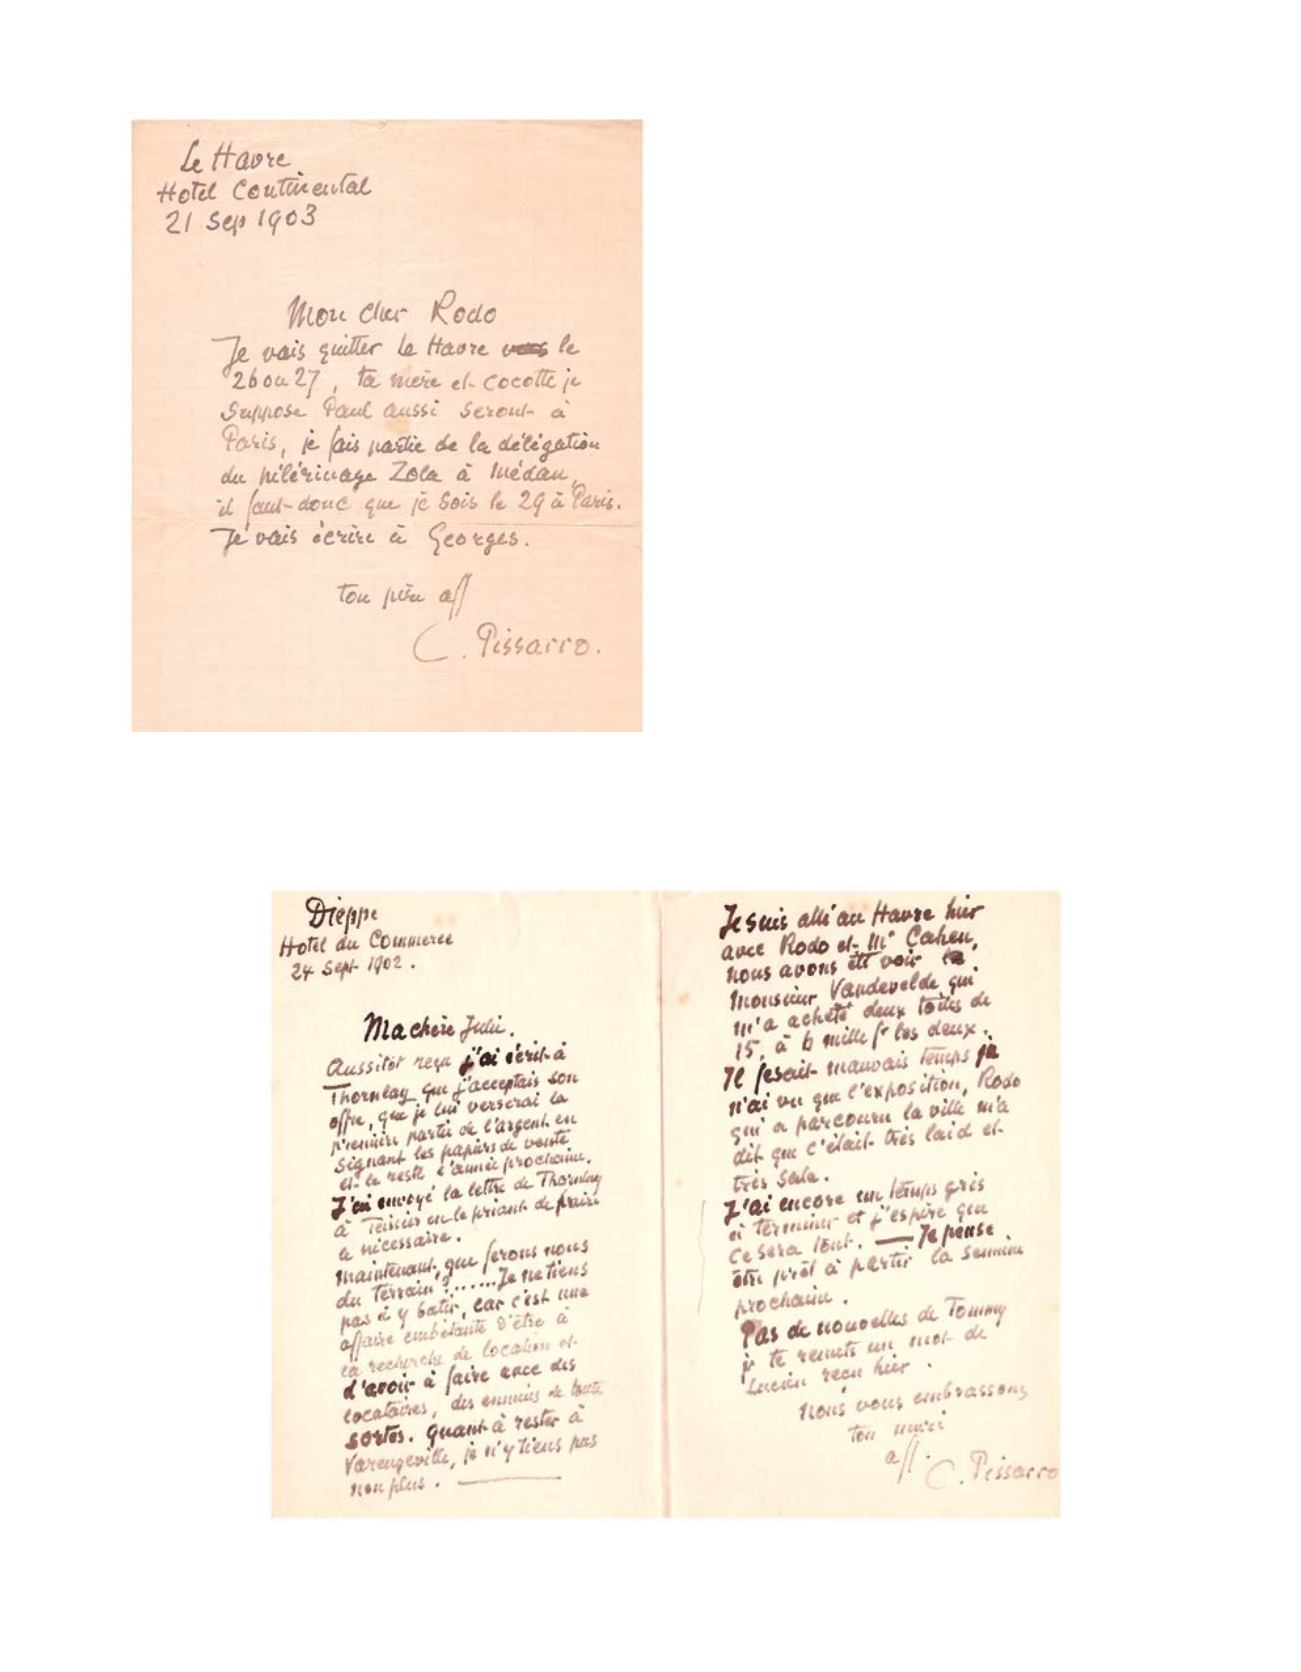 Le Havre
Hotel Continental
21 Sep 1903
Mon cher Rodo
Je vais quitter Le Havre le
26 ou 27, ta mère et cocotte je
suppose Paul aussi seront à
Paris, je fais partie de la délégation
du pélérinage Zola à Médan,
il faut donc que je sois le 29 à Paris.
Je vais écrire à Georges.
ton père aff
C. Pissarro.
Dieppe
Hotel du Commerce
24 Sept 1902.
Ma chère Julie.
Aussitôt reçu j'ai écrit à
Thornlay que j'acceptais son
offre, que je lui verserai la
première partie de l'argent en
signant les papiers de vente
et le reste l'année prochaine.
J'ai envoyé la lettre de Thornlay
à Teissier en le priant de faire
le nécessaire.
Maintenant, que ferons nous
du terrain?...... Je ne tiens
pas à y batir, car c'est une
affaire embêtante d'être à
la recherche de location et
d'avoir à faire avec des
locataires, des ennuies de toute
sortes. quant à rester à
Varengeville, je n'y tiens pas
non plus.
Je suis allé au Havre hier
avec Rodo et Mr Cahen,
nous avons été voir
Monsieur Vandevelde qui
m'a acheté deux toiles de
15, à 6 mille fr les deux.
Il fesait mauvais temps je
n'ai vu que l'exposition, Rodo
qui a parcouru la ville m'a
dit que c'était très laid et
très sale.
J'ai encore un temps gris
à terminer et j'espère que
ce sera tout. — Je pense
être prêt à partir la semaine
prochaine.
Pas de nouvelles de Tommy
je te remets un mot de
Lucien reçu hier.
nous vous embrassons
ton mari
aff.
C. Pissarro